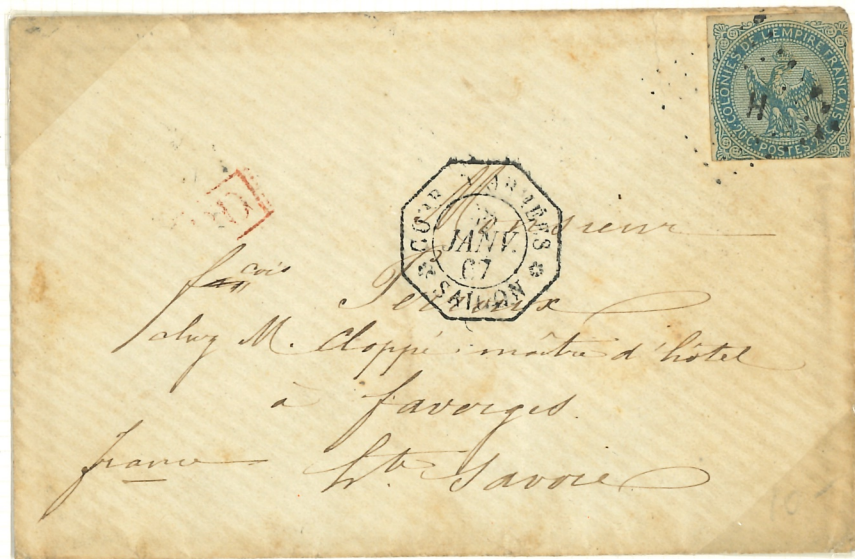 COLONIES DE L'EMPIRE FRANÇAIS
20c. POSTES
CORR. D. ARMÉES
JANV.
67
SAIGON
Monsieur
françois
chez M. Cloppé maître d'hôtel
à faverges.
france Hte Savoie